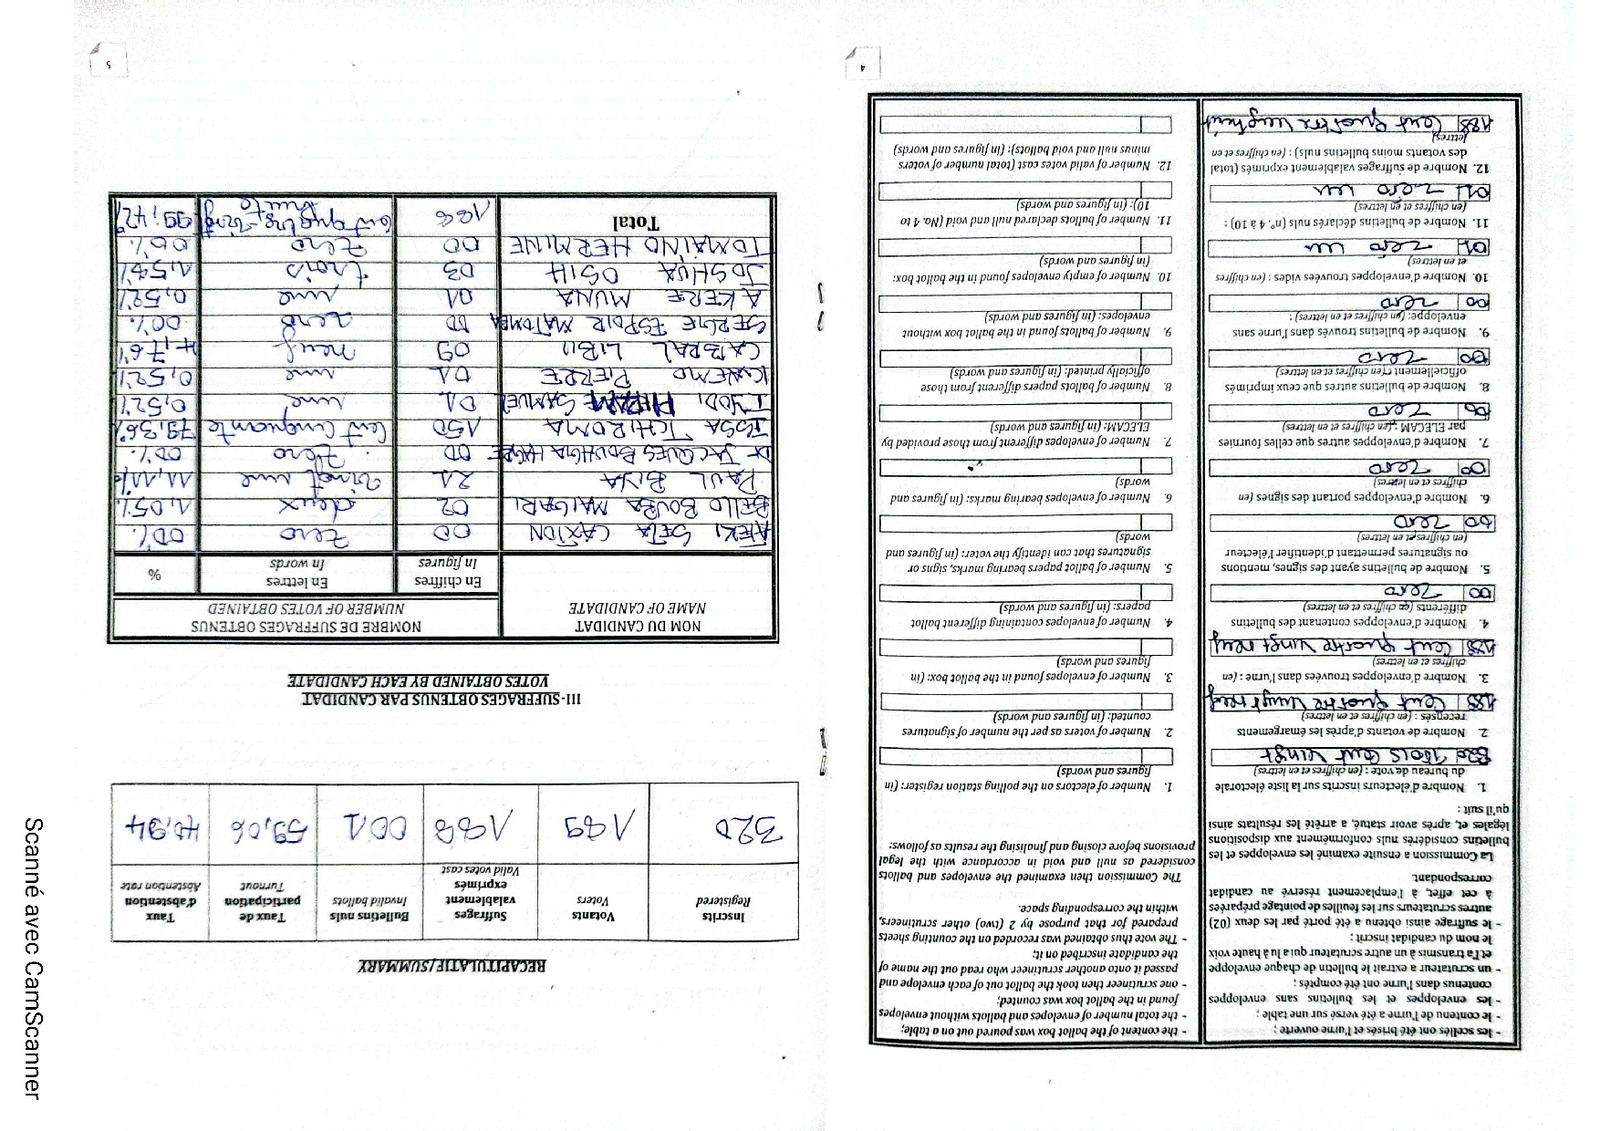 - les scellés ont été brisés et l'urne ouverte ;
- le contenu de l'urne a été versé sur une table ;
- les enveloppes et les bulletins sans enveloppes
contenus dans l'urne ont été comptés ;
- un scrutateur a extrait le bulletin de chaque enveloppe
et l'a transmis à un autre scrutateur qui a lu à haute voix
le nom du candidat inscrit ;
- le suffrage ainsi obtenu a été porté par les deux (02)
autres scrutateurs sur les feuilles de pointage préparées
à cet effet, à l'emplacement réservé au candidat
correspondant.
La Commission a ensuite examiné les enveloppes et les
bulletins considérés nuls conformément aux dispositions
légales et, après avoir statué, a arrêté les résultats ainsi
qu'il suit :
1. Nombre d'électeurs inscrits sur la liste électorale
du bureau de vote : (en chiffres et en lettres)
320 Trois Cent vingt
2. Nombre de votants d'après les émargements
recensés : (en chiffres et en lettres)
189 Cent quatre vingt neuf
3. Nombre d'enveloppes trouvées dans l'urne : (en
chiffres et en lettres)
189 Cent quatre vingt neuf
4. Nombre d'enveloppes contenant des bulletins
différents (en chiffres et en lettres)
00 zero
5. Nombre de bulletins ayant des signes, mentions
ou signatures permettant d'identifier l'électeur
(en chiffres et en lettres)
00 zero
6. Nombre d'enveloppes portant des signes (en
chiffres et en lettres)
00 zero
7. Nombre d'enveloppes autres que celles fournies
par ELECAM : (en chiffres et en lettres)
00 zero
8. Nombre de bulletins autres que ceux imprimés
officiellement : (en chiffres et en lettres)
00 zero
9. Nombre de bulletins trouvés dans l'urne sans
enveloppe: (en chiffres et en lettres) :
00 zero
10. Nombre d'enveloppes trouvées vides : (en chiffres
et en lettres)
01 zero un
11. Nombre de bulletins déclarés nuls (n°. 4 à 10) :
(en chiffres et en lettres)
01 zero un
12. Nombre de suffrages valablement exprimés (total
des votants moins bulletins nuls) : (en chiffres et en
lettres)
188 Cent quatre vingt huit
- the content of the ballot box was poured out on a table;
- the total number of envelopes and ballots without envelopes
found in the ballot box was counted;
- one scrutineer then took the ballot out of each envelope and
passed it onto another scrutineer who read out the name of
the candidate inscribed on it;
- The vote thus obtained was recorded on the counting sheets
prepared for that purpose by 2 (two) other scrutineers,
within the corresponding space.
The Commission then examined the envelopes and ballots
considered as null and void in accordance with the legal
provisions before closing and finalising the results as follows:
1. Number of electors on the polling station register: (in
figures and words)
2. Number of voters as per the number of signatures
counted: (in figures and words)
3. Number of envelopes found in the ballot box: (in
figures and words)
4. Number of envelopes containing different ballot
papers: (in figures and words)
5. Number of ballot papers bearing marks, signs or
signatures that can identify the voter: (in figures and
words)
6. Number of envelopes bearing marks: (in figures and
words)
7. Number of envelopes different from those provided by
ELECAM: (in figures and words)
8. Number of ballot papers different from those
officially printed: (in figures and words)
9. Number of ballots found in the ballot box without
envelopes: (in figures and words)
10. Number of empty envelopes found in the ballot box:
(in figures and words)
11. Number of ballots declared null and void (No. 4 to
10): (in figures and words)
12. Number of valid votes cast (total number of voters
minus null and void ballots): (in figures and words)
4
RECAPITULATIF/SUMMARY
Inscrits Registered | Votants Voters | Suffrages valablement exprimés Valid votes cast | Bulletins nuls Invalid ballots | Taux de participation Turnout | Taux d'abstention Abstention rate
320 | 189 | 188 | 001 | 59,06 | 40,94
III-SUFFRAGES OBTENUS PAR CANDIDAT
VOTES OBTAINED BY EACH CANDIDATE
NOM DU CANDIDAT NAME OF CANDIDATE | NOMBRE DE SUFFRAGES OBTENUS NUMBER OF VOTES OBTAINED
En chiffres In figures | En lettres In words | %
ATEKI SETA CAXTON | 00 | zero | 00%
BELLO BOUBA MAIGARI | 02 | deux | 1,05%
PAUL BIYA | 21 | vingt une | 11,11%
Dr JACQUES BOUHGHA HAGBE | 00 | zero | 00%
ISSA TCHIROMA | 150 | Cent cinquante | 79,36%
IYODI SAMUEL | 01 | une | 0,52%
KWEMO PIERRE | 01 | une | 0,52%
CABRAL LIBII | 09 | neuf | 4,76%
SERGE ESPOIR MATOMBA | 00 | zero | 00%
AKERE MUNA | 01 | une | 0,52%
JOSHUA OSIH | 03 | trois | 1,58%
TOMAÏNO HERMINE | 00 | zero | 00%
Total | 188 | Cent quatre-vingt huite | 99,42%
5
Scanné avec CamScanner